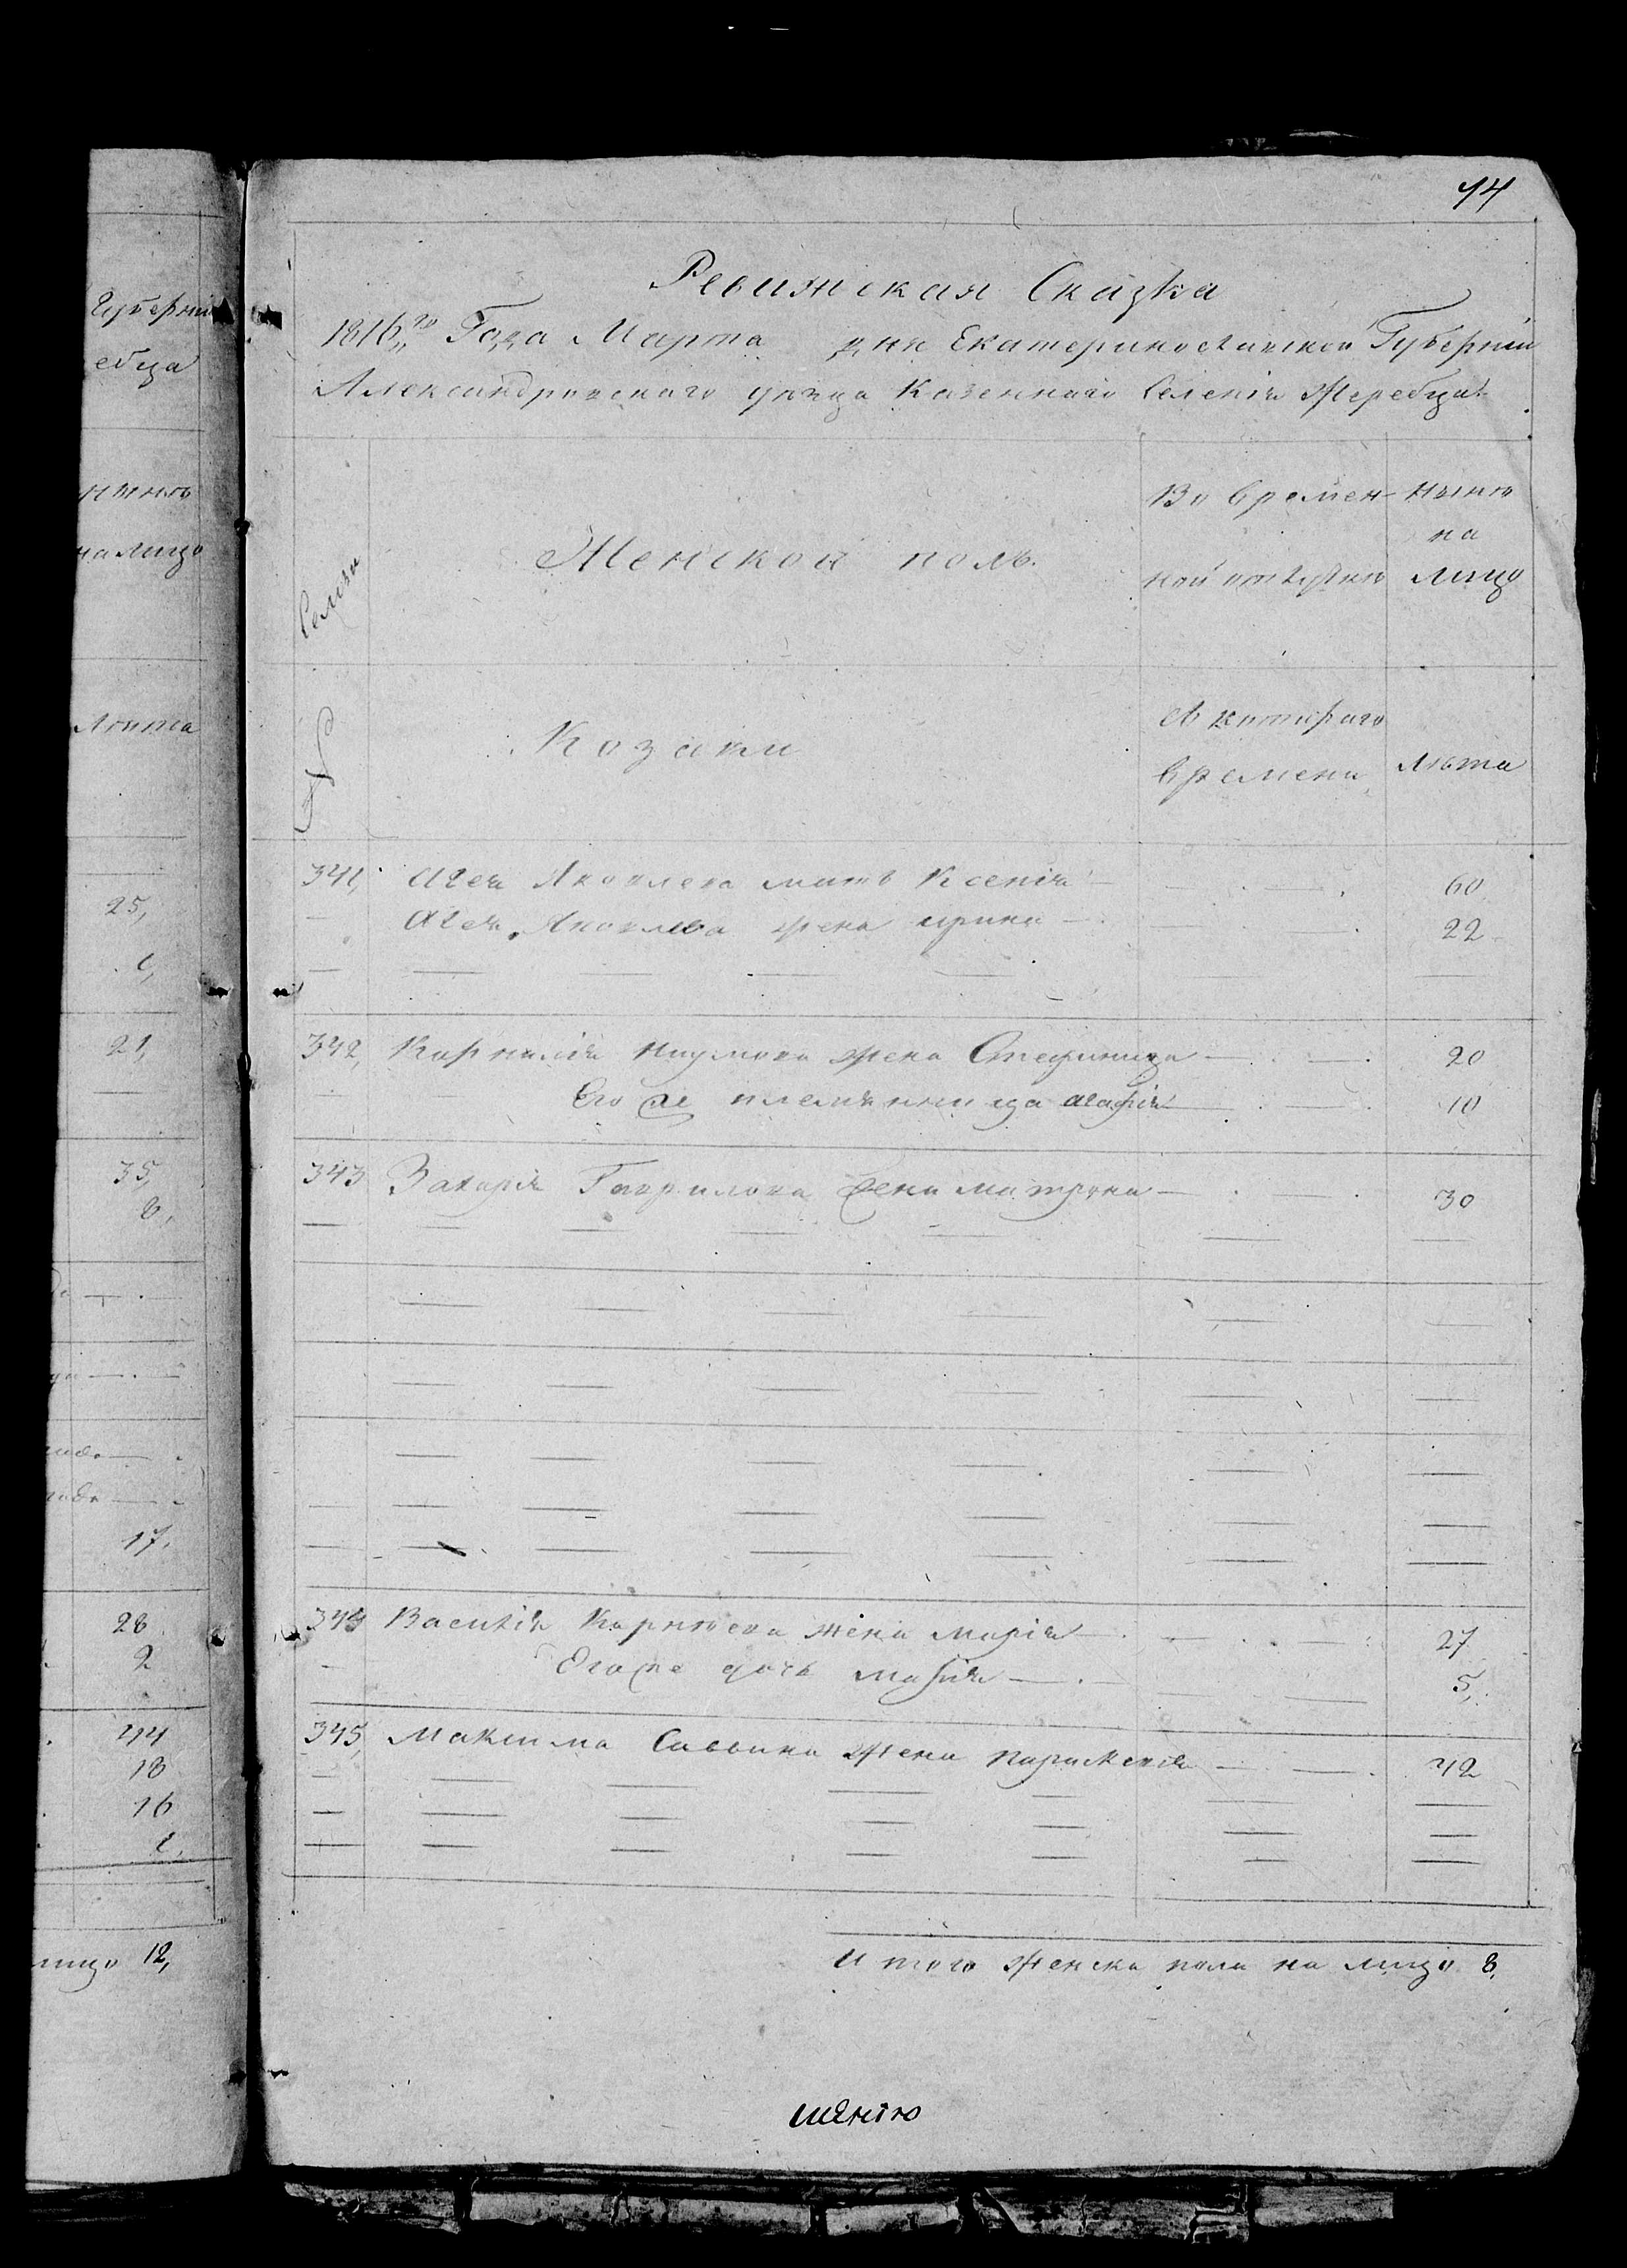 Губерніи
ебца
нынѣ
на лицо
лѣта
25,
21,
35,
17.
28
2
44
18
16
лицо 12,
74
Ревижская Сказка
1816го Года Марта дня Екатеринославской Губерніи
Александровскаго уѣзда Казеннаго Селенія Жеребца
Женской полъ.
Во времен-
ной отлучкѣ
Нынѣ
на
лицо
№ Семьи
Козаки
Съ котораго
времени
Лѣта
341, Агея Яковлева мать Ксенія 60
Агея Яковлева жена ирина 22
342, Карнилія Наумова жена Стефанида 20
Его же племянница агафія 10
343 Захарія Гаврилова жена матрона 30
344 Василія Карнѣева жена марія 27
Его же дочь марія 5,
345, Максима Саввина жена параскевія 42
И того женска пола на лицо 8,